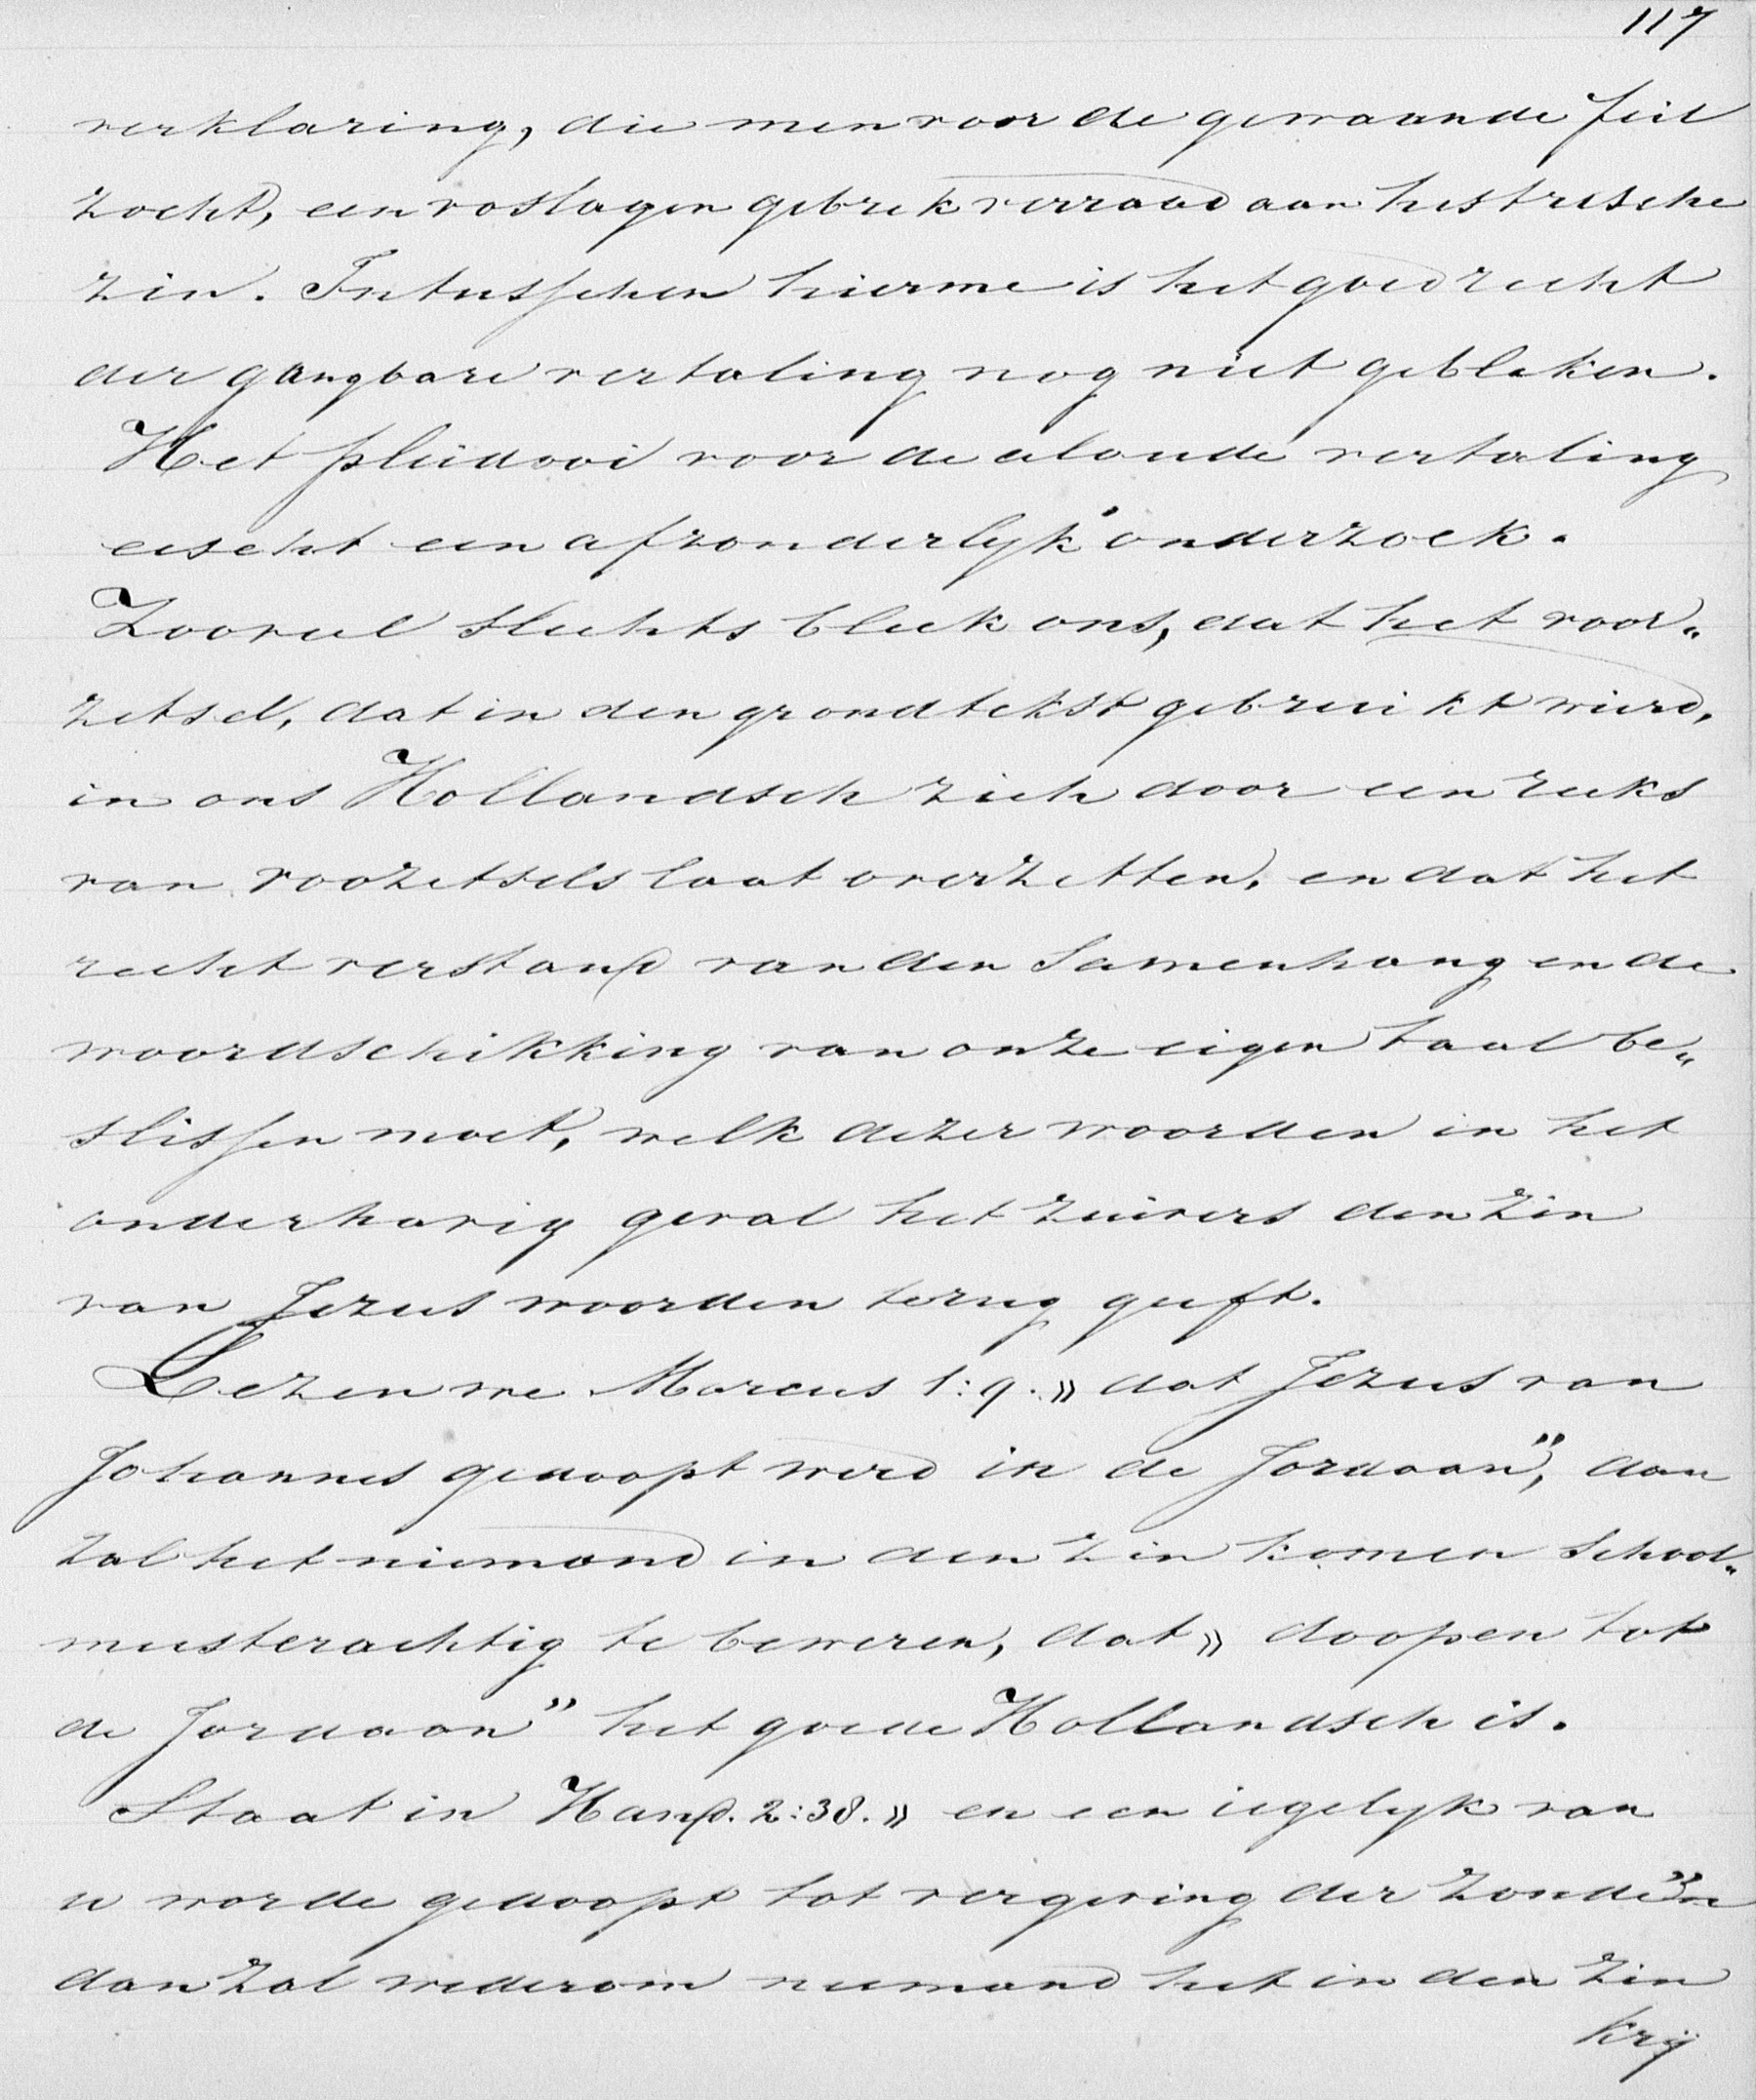 117
verklaring, die men voor de gewaande feil
zocht, een voslagen gebrek verraad aan histrische
zin. Intusschen hierme is het goed recht
der gangbare vertaling nog niet gebleken.
Het pleidooi voor de aloude vertaling
eischt een afzonderlyk onderzoek.
Zooveel slechts bleek ons, dat het voor„
zetsel, dat in den grondtekst gebruikt wierd,
in ons Hollandsch zich door een reeks
van voozetsels laat overzetten, en dat het
recht verstand van den samenhang en de
woordschikking van onze eigen taal be„
slissen moet, welk dezer woorden in het
onderhavig geval het zuivers den zin
van Jezus woorden terug geeft.
Lezen we Marcus 1:9. » dat Jezus van
Johannes gedoopt werd in de Jordaan", dan
zal het niemand in den zin komen school„
meesterachtig te beweren, dat » doopen tot
de Jordaan" het goede Hollandsch is.
Staat in Hand. 2:38. » en een iegelyk van
u worde gedoopt tot vergeving der zonden"
dan zal wederom niemand het in den zin
krij